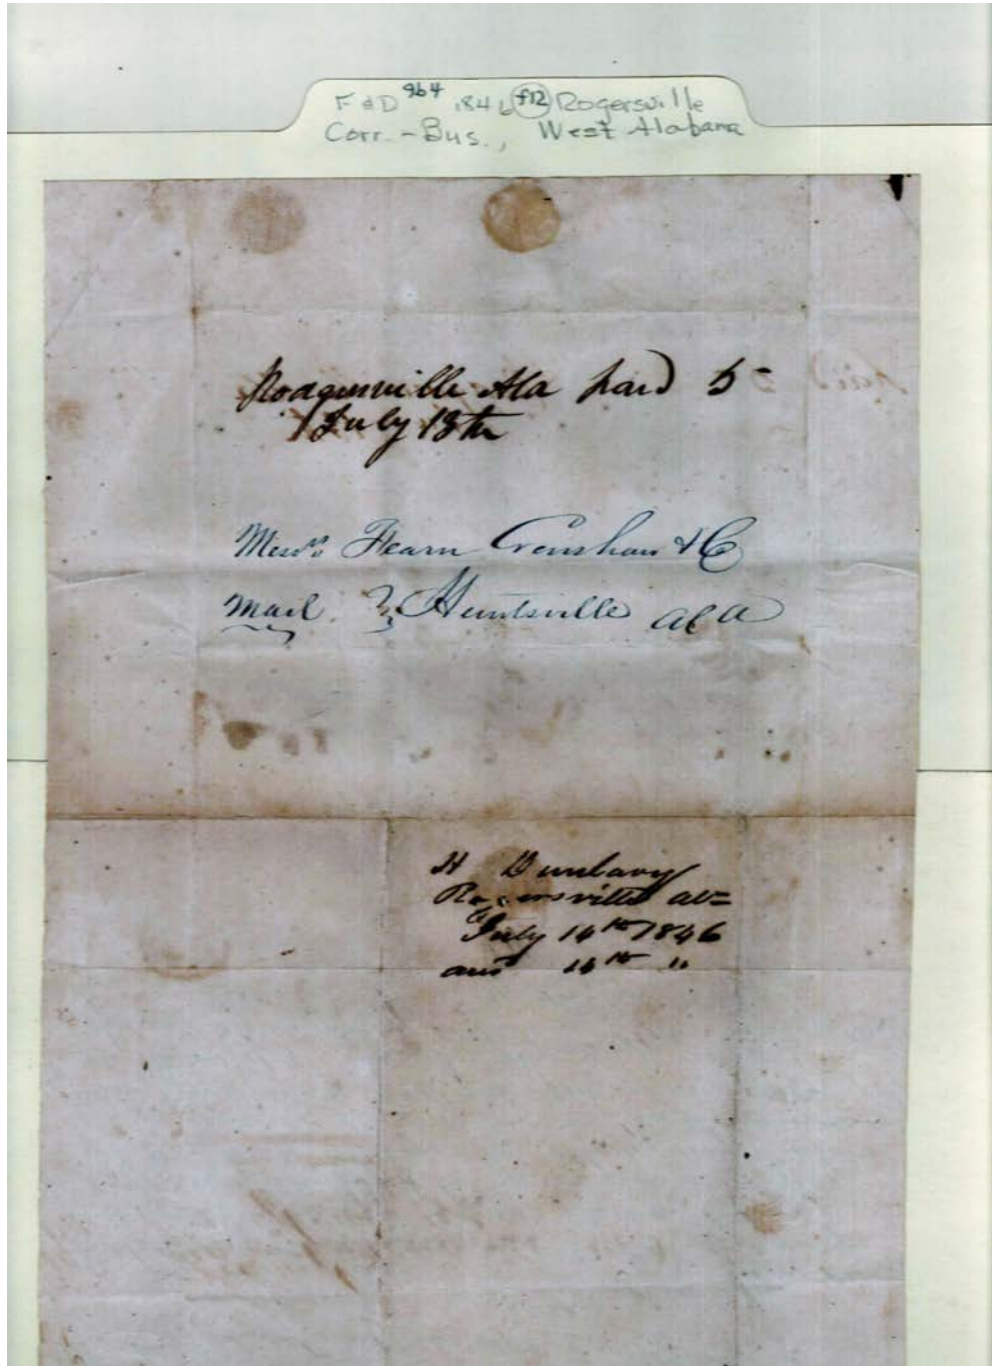 F&D 964 1846 f12 Rogersville
Corr.-Bus., West Alabama
Rodgersville Ala paid 5
July 13th
Messrs Fearn Crenshaw & C
Mail Huntsville Ala
H Dunlavy
Rogersville Ala
July 14th 1846
ans 16th "